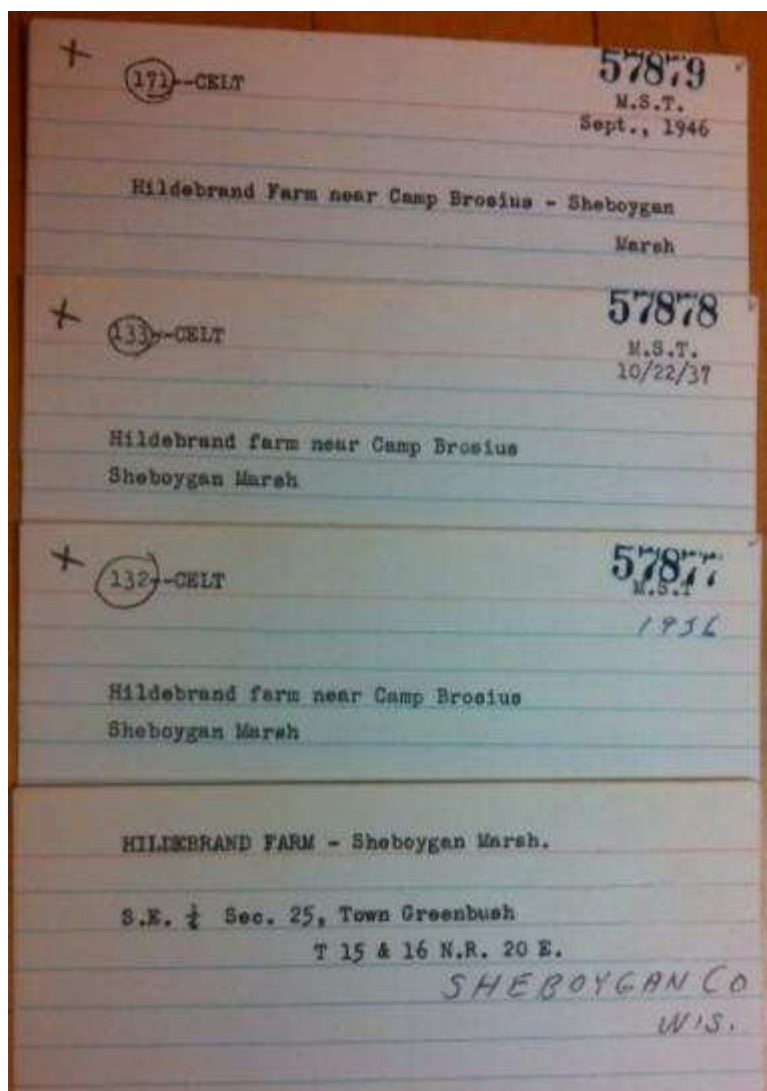 + 171--CELT 57879
M.S.T.
Sept., 1946
Hildebrand Farm near Camp Brosius - Sheboygan
Marsh
+ 133--CELT 57878
M.S.T.
10/22/37
Hildebrand farm near Camp Brosius
Sheboygan Marsh
+ 132--CELT 57877
M.S.T
1936
Hildebrand farm near Camp Brosius
Sheboygan Marsh
HILDEBRAND FARM - Sheboygan Marsh.
S.E. ¼ Sec. 25, Town Greenbush
T 15 & 16 N.R. 20 E.
SHEBOYGAN CO
WIS.